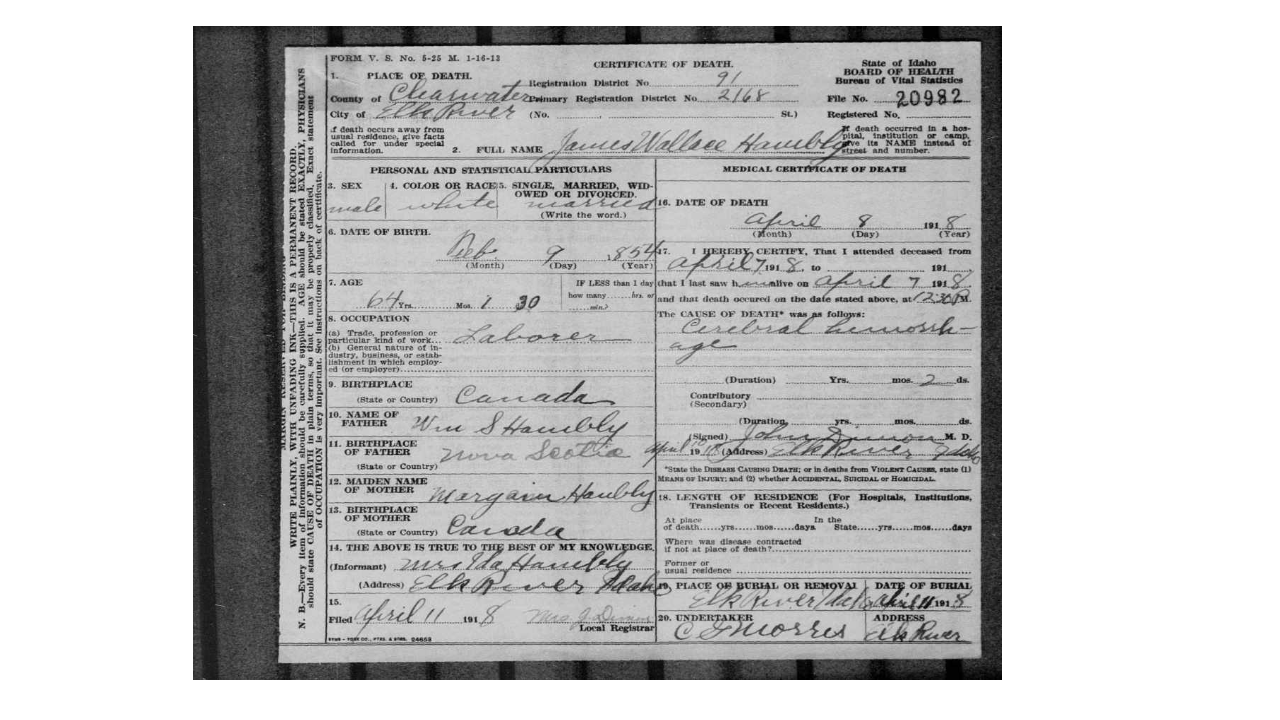 FORM V. S. No. 5-25 M. 1-16-12
CERTIFICATE OF DEATH.
State of Idaho
BOARD OF HEALTH
Bureau of Vital Statistics
1. PLACE OF DEATH.
Registration District No 91
County of Clearwater Primary Registration District No 2168
File No. 20982
City of Elk River (No. St.)
Registered No.
If death occurs away from
usual residence, give facts
called for under special
information.
2. FULL NAME James Wallace Hambly
If death occurred in a hos-
pital, institution or camp,
give its NAME instead of
street and number.
PERSONAL AND STATISTICAL PARTICULARS
3. SEX male
4. COLOR OR RACE white
5. SINGLE, MARRIED, WID-
OWED OR DIVORCED.
married
(Write the word.)
6. DATE OF BIRTH.
Feb. 9 1854
(Month) (Day) (Year)
7. AGE
64 Yrs. Mos. 1 30
IF LESS than 1 day
how many hrs. or
min.)
8. OCCUPATION
(a) Trade, profession or
particular kind of work
Laborer
(b) General nature of in-
dustry, business, or estab-
lishment in which employ-
ed (or employer)
9. BIRTHPLACE
(State or Country) Canada
10. NAME OF
FATHER Wm S Hambly
11. BIRTHPLACE
OF FATHER Nova Scotia
(State or Country)
12. MAIDEN NAME
OF MOTHER Hambly
13. BIRTHPLACE
OF MOTHER
(State or Country) Canada
14. THE ABOVE IS TRUE TO THE BEST OF MY KNOWLEDGE.
(Informant) Mrs Ida Hambly
(Address) Elk River Idaho
15.
Filed April 11 1918 Mrs J
Local Registrar
MEDICAL CERTIFICATE OF DEATH
16. DATE OF DEATH
April 8 1918
(Month) (Day) (Year)
17. I HEREBY CERTIFY, That I attended deceased from
April 7 1918, to 191
that I last saw him alive on April 7 1918
and that death occured on the date stated above, at 12:30 M.
The CAUSE OF DEATH* was as follows:
Cerebral hemorrh-
age
(Duration) Yrs. mos. 2 ds.
Contributory
(Secondary)
(Duration yrs. mos. ds.
(Signed) John M. D.
April 10 1918 (Address) Elk River Idaho
*State the DISEASE CAUSING DEATH; or in deaths from VIOLENT CAUSES, state (1)
MEANS OF INJURY; and (2) whether ACCIDENTAL, SUICIDAL or HOMICIDAL.
18. LENGTH OF RESIDENCE (For Hospitals, Institutions,
Transients or Recent Residents.)
At place In the
of death yrs mos days State yrs mos days
Where was disease contracted
if not at place of death?
Former or
usual residence
19. PLACE OF BURIAL OR REMOVAL
Elk River Idaho
DATE OF BURIAL
April 11 1918
20. UNDERTAKER
Morris
ADDRESS
Elk River
N. B.—Every item of information should be carefully supplied. AGE should be stated EXACTLY, PHYSICIANS
should state CAUSE OF DEATH in plain terms, so that it may be properly classified. Exact statement
of OCCUPATION is very important. See instructions on back of certificate.
WRITE PLAINLY, WITH UNFADING INK—THIS IS A PERMANENT RECORD.